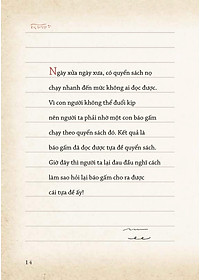 Ngày xửa ngày xưa, có quyển sách nọ
chạy nhanh đến mức không ai đọc được.
Vì con người không thể đuổi kịp
nên người ta phải nhờ một con báo gấm
chạy theo quyển sách đó. Kết quả là
báo gấm đã đọc được tựa đề quyển sách.
Giờ đây thì người ta lại đau đầu nghĩ cách
làm sao hỏi lại báo gấm cho ra được
cái tựa đề ấy!
14